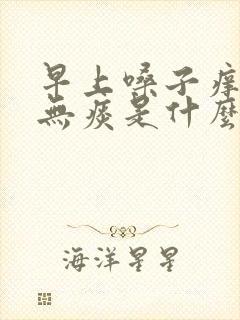 早上嗓子痒
无痰是什麼
海洋星星